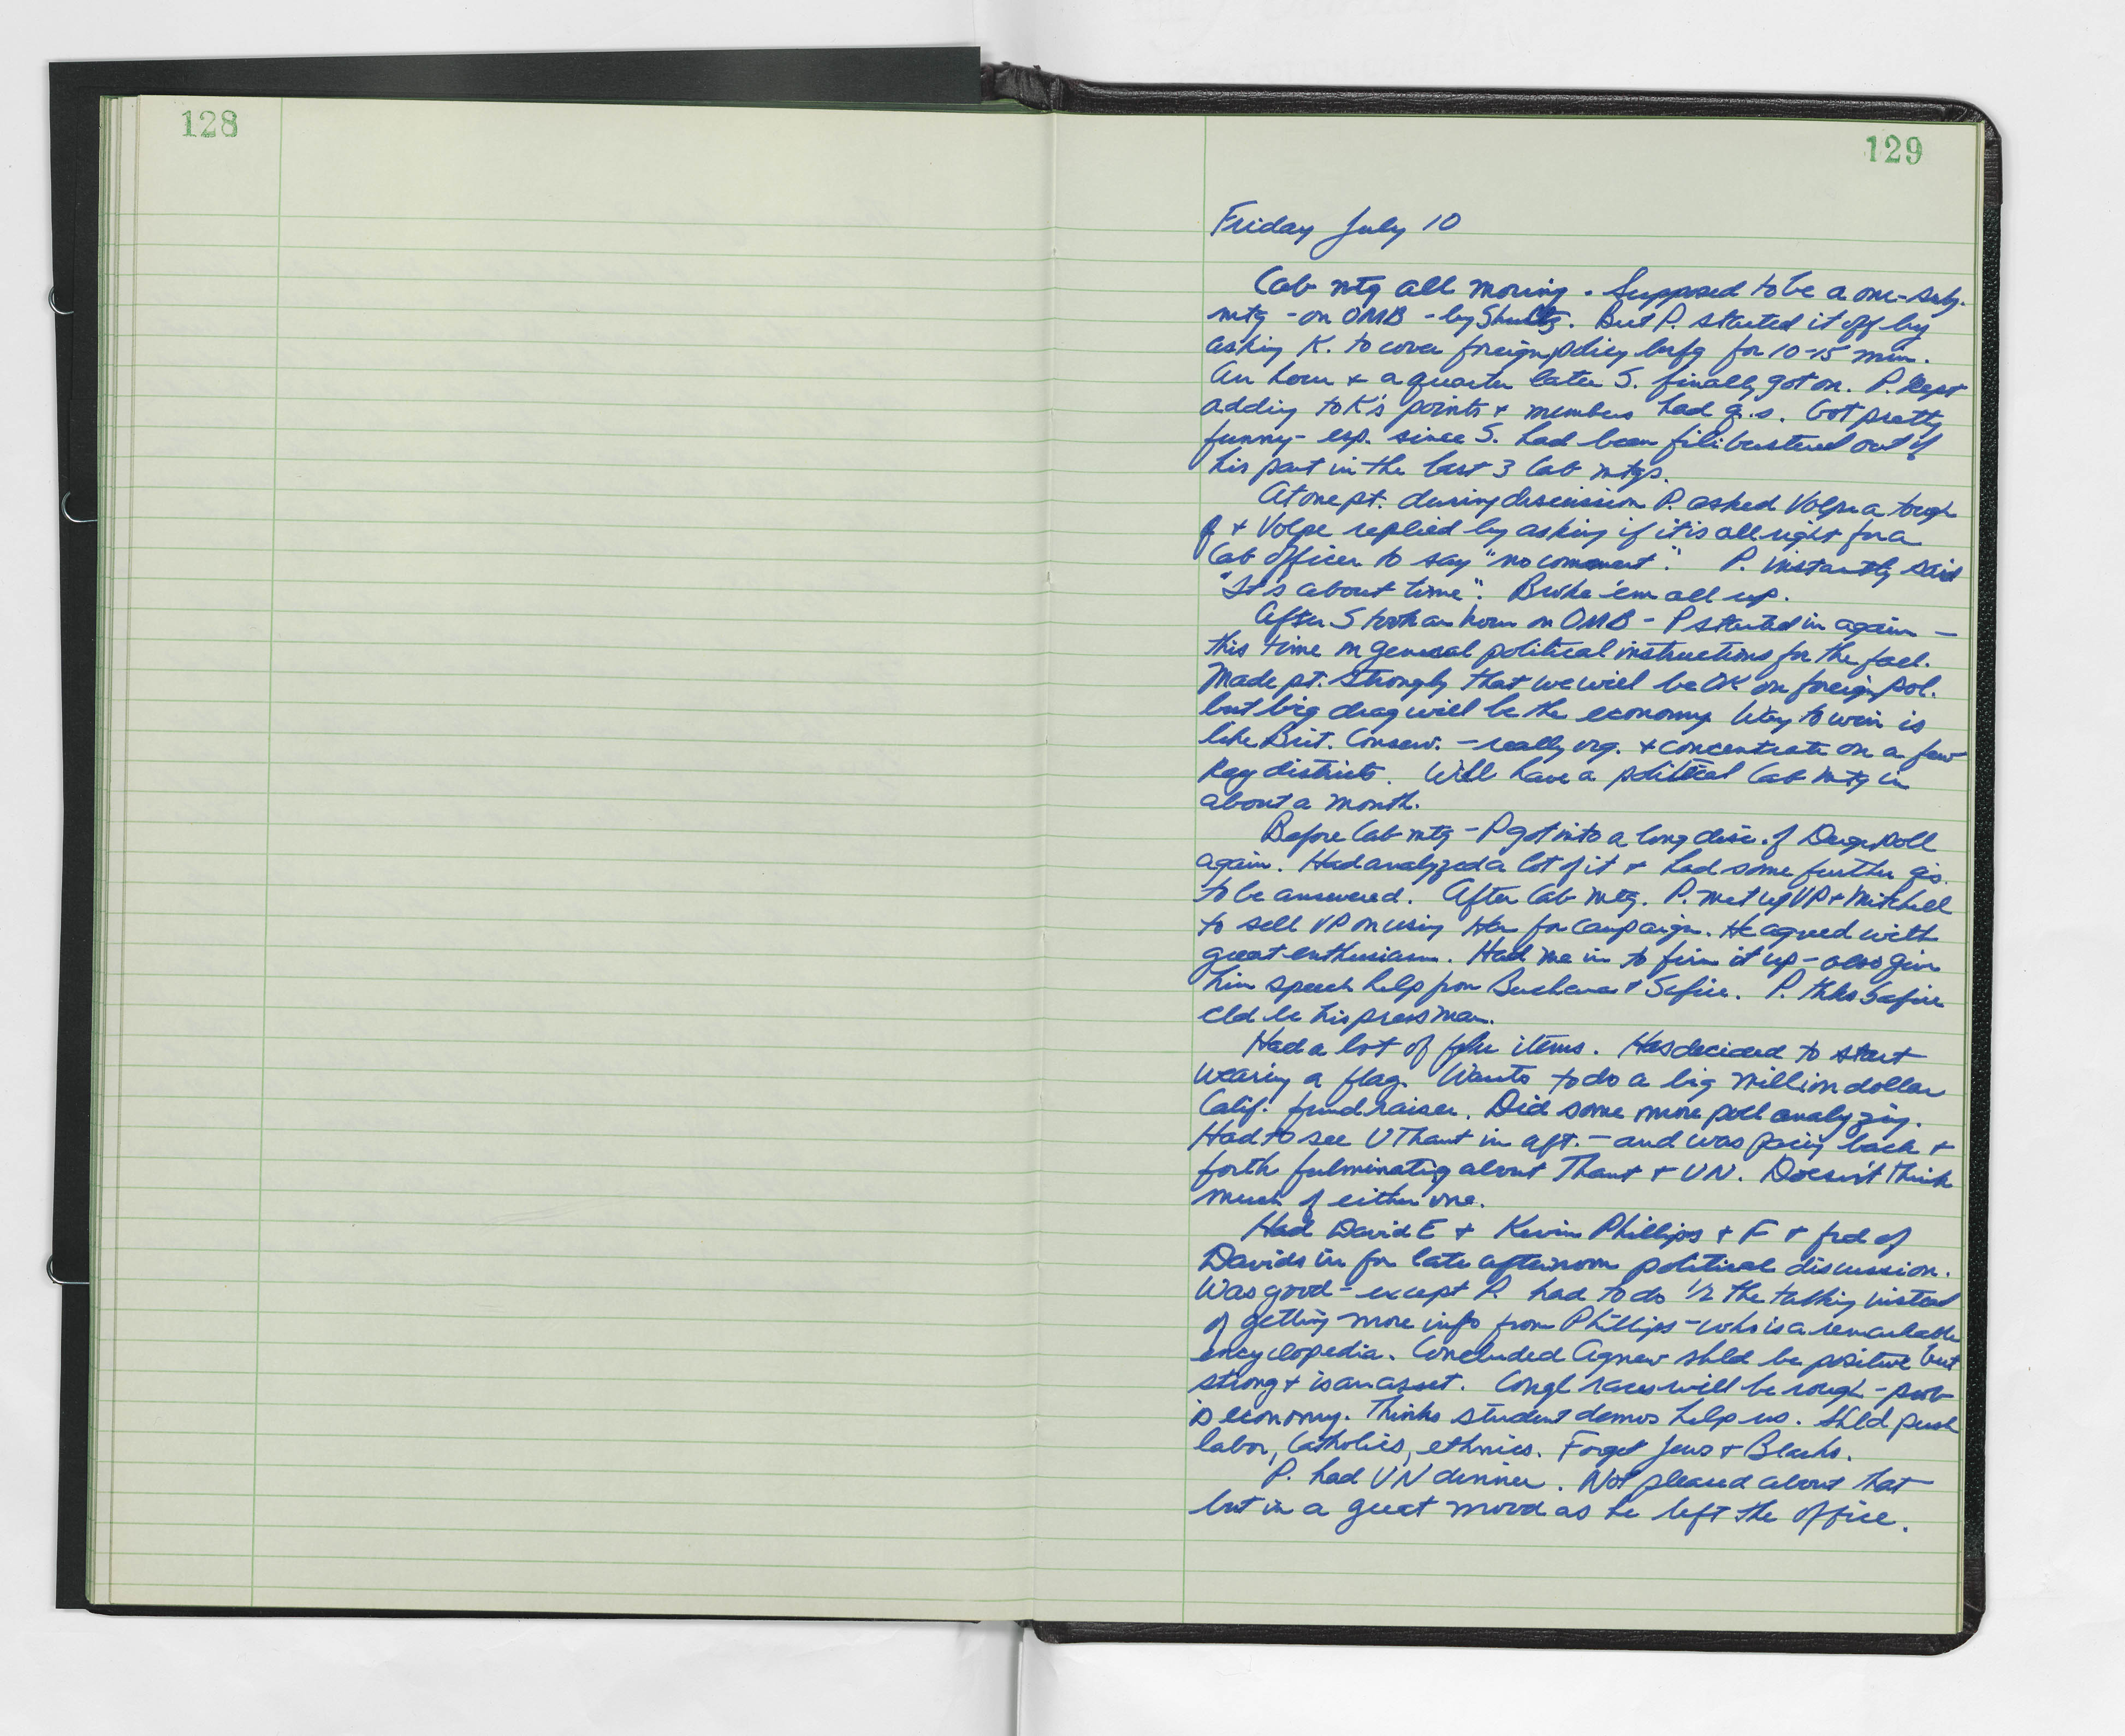 128
129
Friday July 10
Cab mtg all morning. Supposed to be a one-subj.
mtg - on OMB - by Shultz. But P. started it off by
asking K. to cover foreign policy brfg for 10-15 min.
An hour + a quarter later S. finally got on. P. kept
adding to K's points + members had q.s. Got pretty
funny - esp. since S. had been filibustered out of
his part in the last 3 Cab mtgs.
At one pt. during discussion P. asked Volpe a tough
q + Volpe replied by asking if it is all right for a
Cab officer to say "no comment". P. instantly said
"It's about time". Broke 'em all up.
After S took an hour on OMB - P started in again -
this time on general political instructions for the fall.
Made pt. strongly that we will be OK on foreign pol.
but big drag will be the economy. Way to win is
like Brit. Conserv. - really org. + concentrate on a few
key districts. Will have a political Cab mtg in
about a month.
Before Cab mtg - P got into a long disc. of Derge poll
again. Had analyzed a lot of it + had some further qs.
to be answered. After Cab mtg. P. met w/ VP + Mitchell
to sell VP on using for campaign. He agreed with
great enthusiasm. Had me in to firm it up - also give
him speech help from Buchanan + Safire. P. thks Safire
cld be his press man.
Had a lot of items. Has decided to start
wearing a flag. Wants to do a big million dollar
Calif. fund raiser. Did some more poll analyzing.
Had to see U Thant in aft. - and was pacing back +
forth fulminating about Thant + UN. Doesn't think
much of either one.
Had David E + Kevin Phillips + F + frd of
Davids in for late afternoon political discussion.
Was good - except P. had to do 1/2 the talking instead
of getting more info from Phillips - who is a remarkable
encyclopedia. Concluded Agnew shld be positive but
strong + is an asset. Congl races will be rough - prob
is economy. Thinks student demos help us. Shld push
labor, Catholics, ethnics. Forget Jews + Blacks.
P. had UN dinner. Not pleased about that
but in a great mood as he left the office.